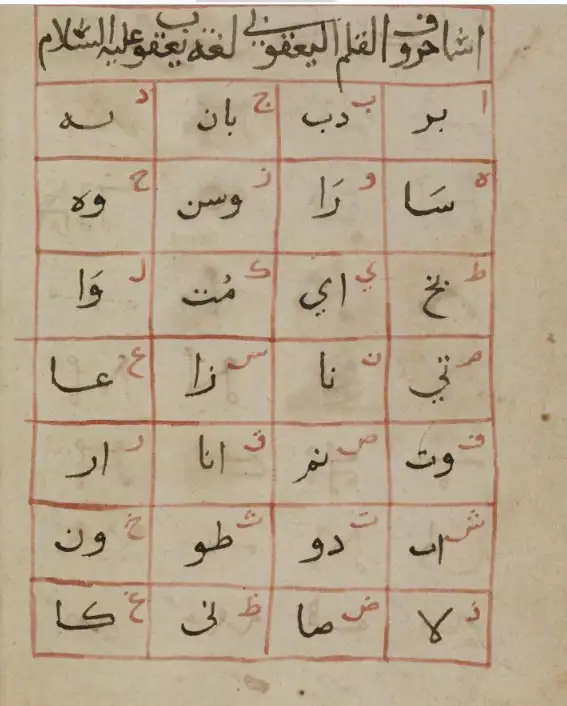 حروف القلم اليعقوبي لغة يعقوب عليه السلام
ا بر ب دب ج بان د سه
ه سَا و رَا ز وسن ح وه
ط بخ ي اي ك مُت ل وَا
م تي ن نا س زا ع عا
ف وت ص نم ق انا ر ار
ش اب ت دو ث طو خ ون
ذ لا ض صا ظ نى غ كا